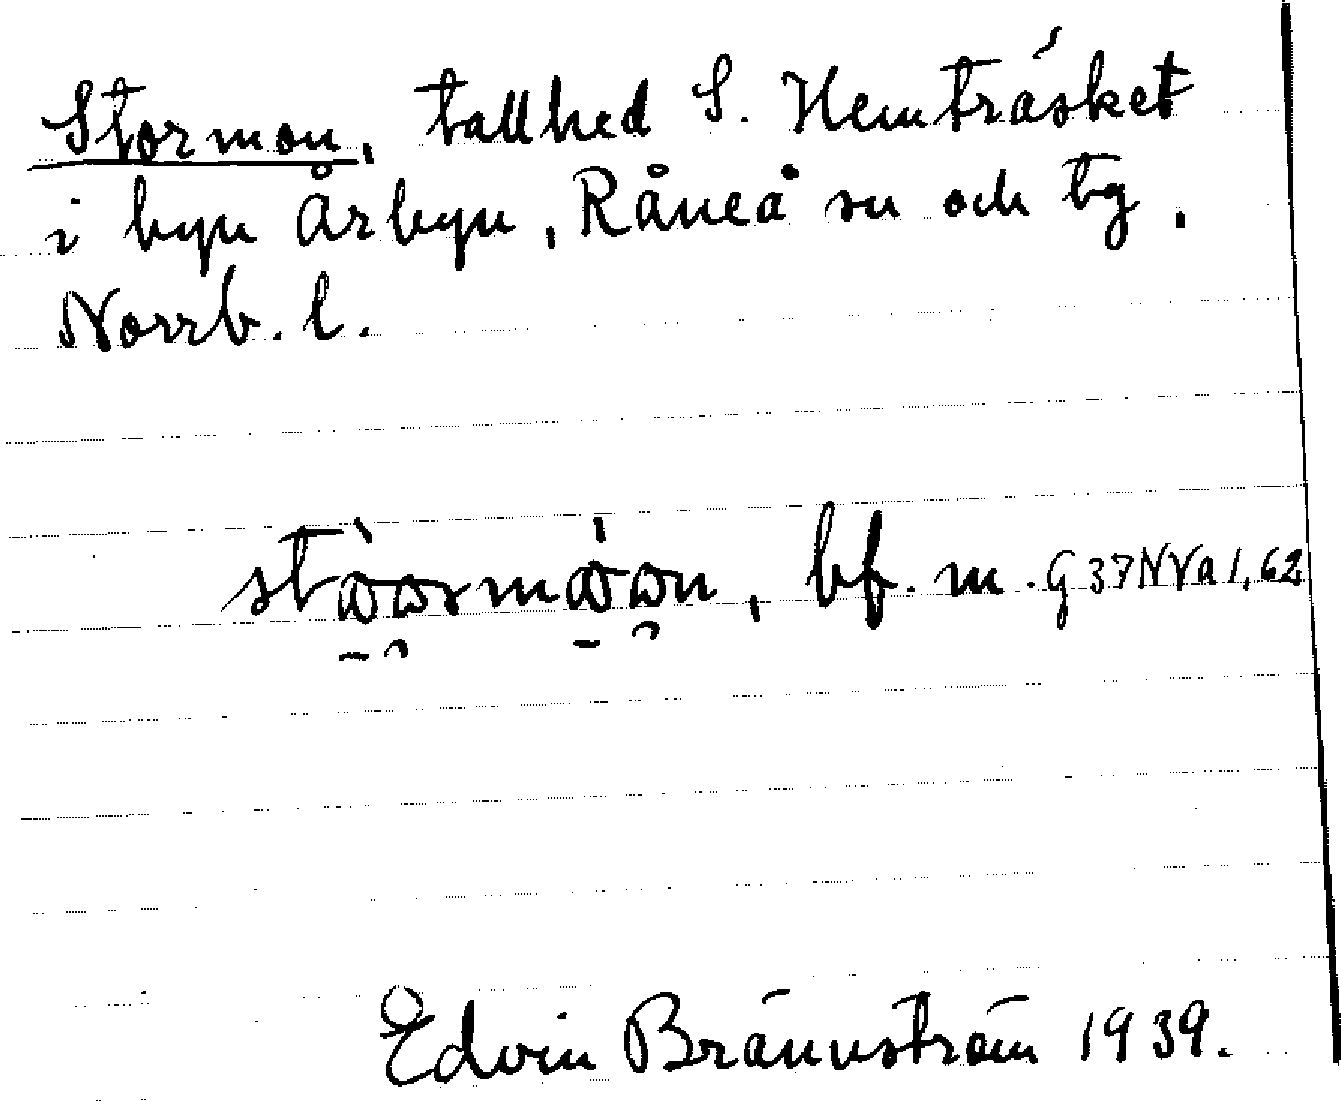 Stormon, tallhed S. Hemträsket
i byn Årbyn, Råneå sn och tg,
Norrb. l.
bf. m. G 37 NVa 1, 62
Edvin Brännström 1939.